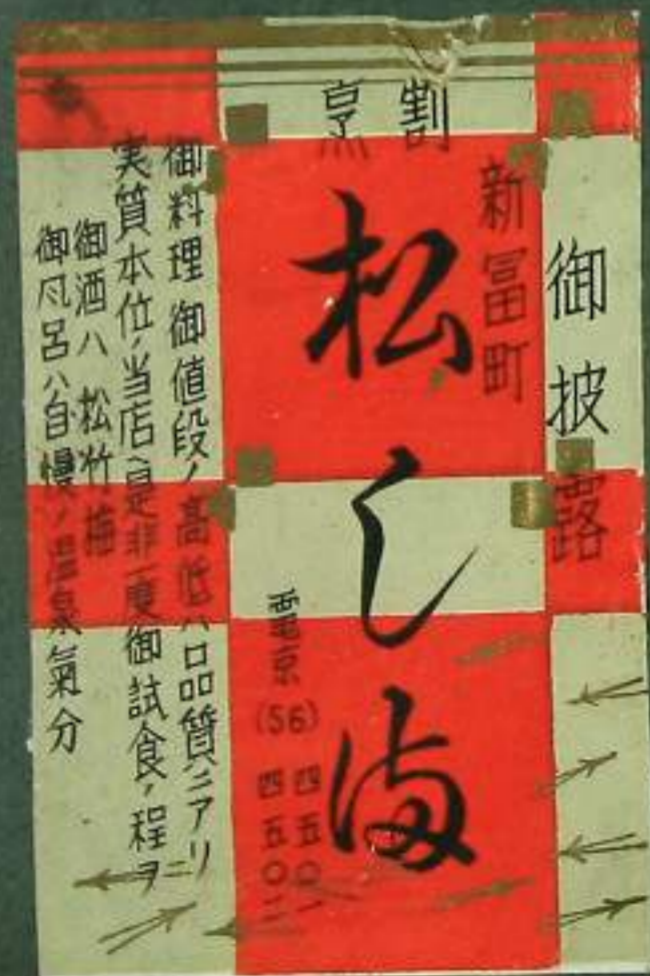 御披露
新富町
割烹
松しま
電京(56)
四五〇一
四五〇二
御料理 御値段ノ高低ハ品質ニアリ
実質本位ノ当店ヘ是非一度御試食ノ程ヲ
御酒ハ 松竹梅
御風呂ハ自慢ノ温泉氣分